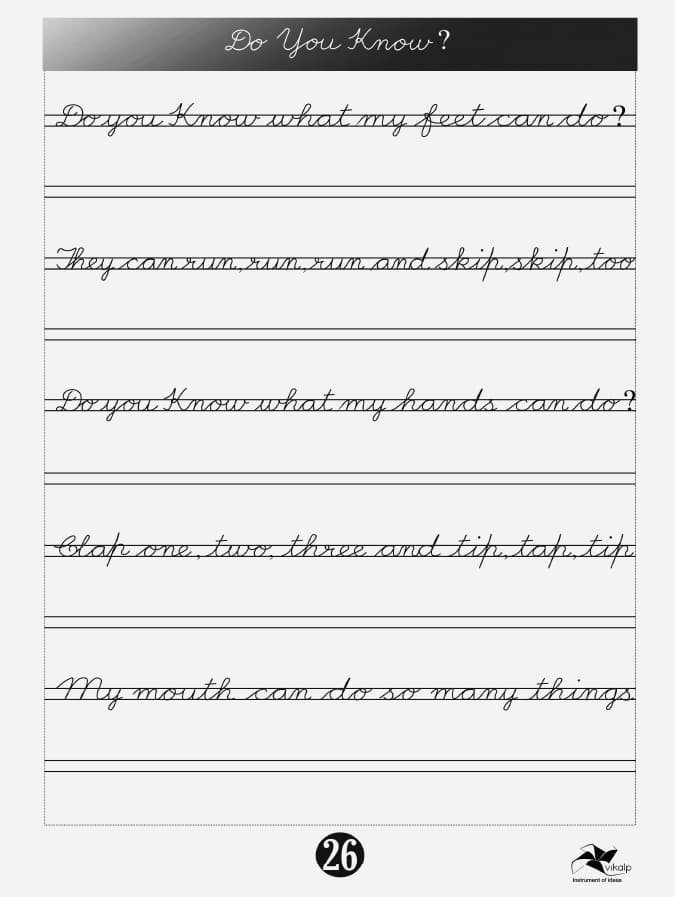 Do You Know?
Do you Know what my feet can do?
They can run, run, run and skip, skip, too
Do you Know what my hands can do?
Clap one, two, three and tip, tap, tip
My mouth can do so many things.
26
vikalp
instrument of ideas